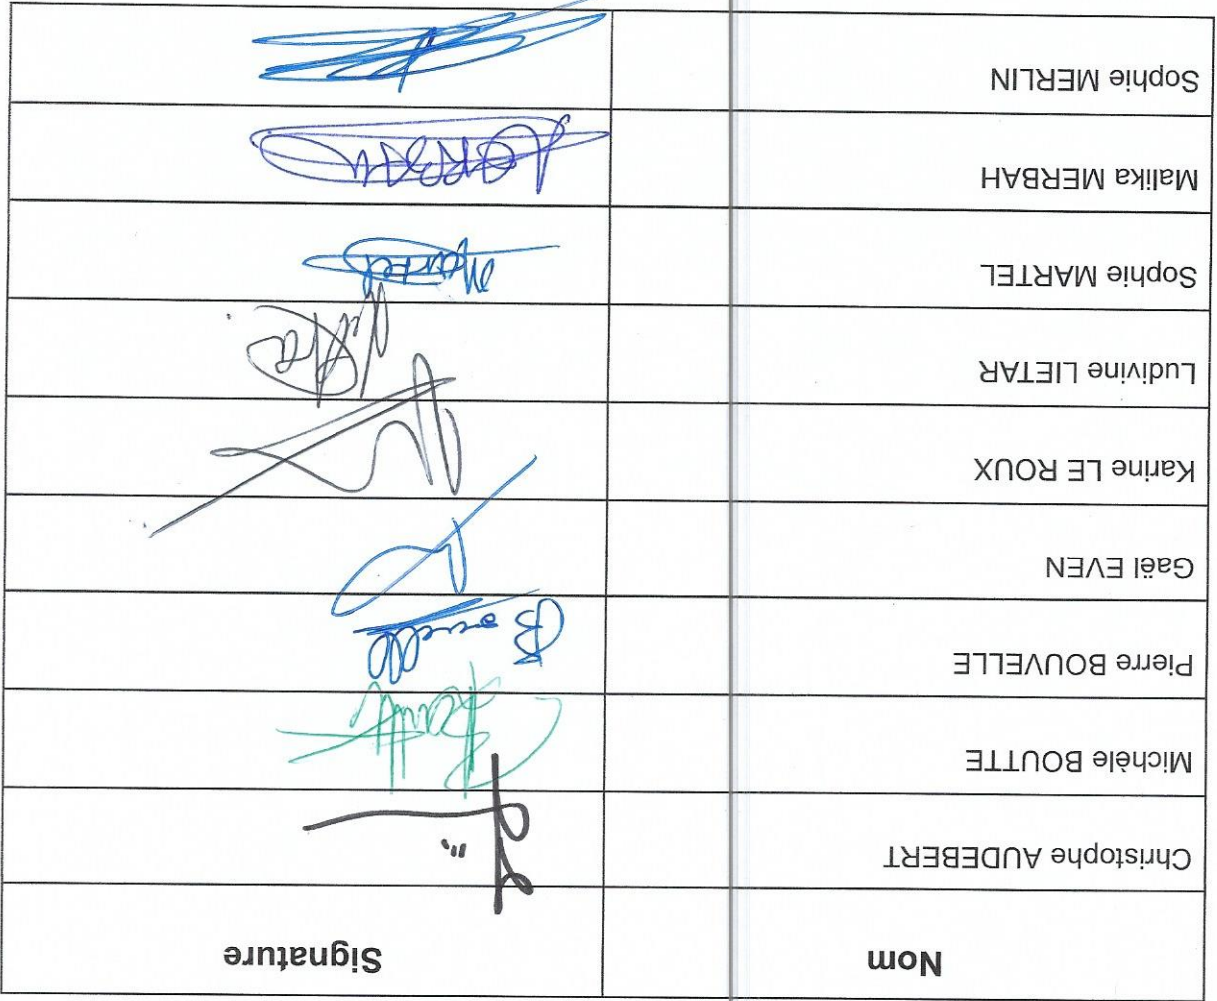 Nom Signature
Christophe AUDEBERT
Michèle BOUTTE
Pierre BOUVELLE
Gaël EVEN
Karine LE ROUX
Ludivine LIETAR
Sophie MARTEL Martel
Malika MERBAH
Sophie MERLIN